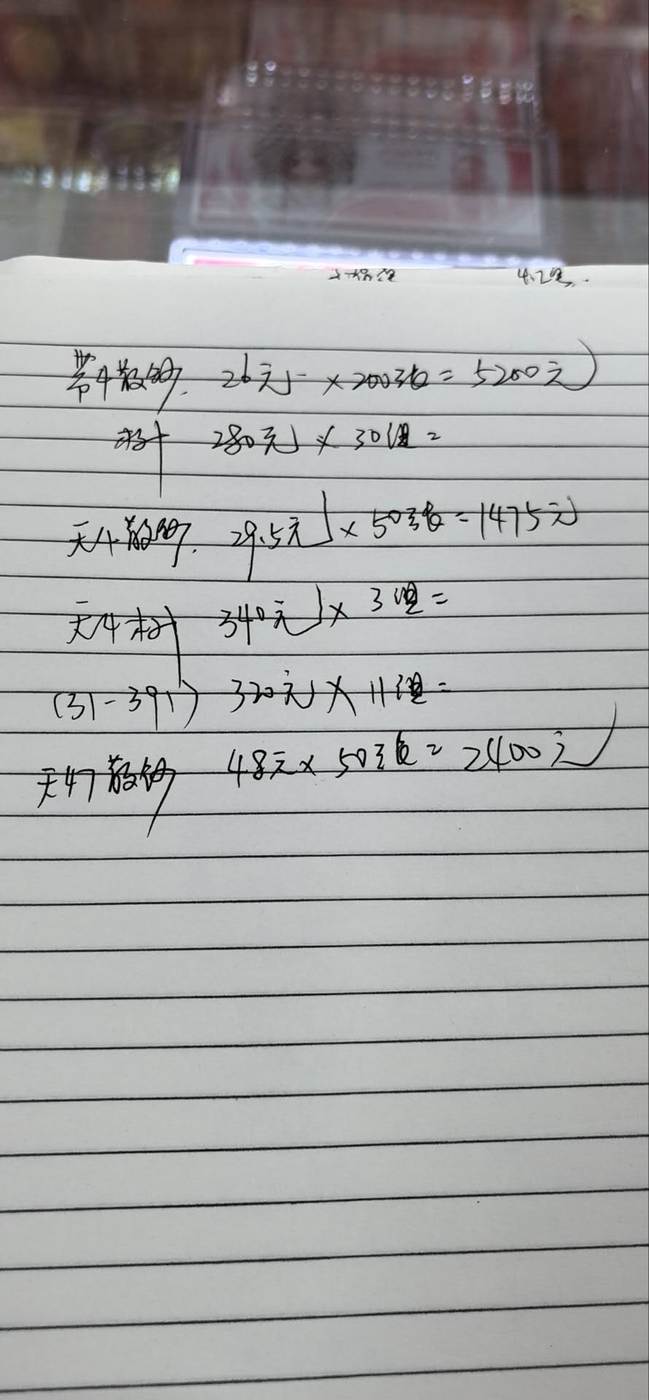 带4散钞. 26元 ×200张=5200元
标十 280元×30组=
无4散钞. 29.5元×50张=1475元
无4标十 340元×3组=
(31-391) 320元×11组=
无47散钞 48元×50张=2400元